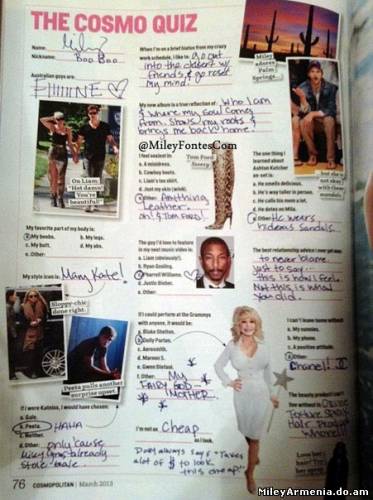 THE COSMO QUIZ
Name: Miley
Nickname: Boo Boo
Australian guys are:
FIIIIINE
On Liam:
"Hot damn!
You're
beautiful!"
My favorite part of my body is:
a. My boobs.
b. My legs.
c. My butt.
d. My abs.
e. Other:
My style icon is: Mary Kate!
Sloppy-chic
done right.
Peeta pulls another
surprise upset.
If I were Katniss, I would have chosen:
a. Gale.
b. Peeta. HAHA
c. Neither.
d. Other: only 'cause
Miley Cyrus already
stole Gale
When I'm on a brief hiatus from my crazy
work schedule, I like to: go out
into the desert w/
friends & go reset
my mind!
My new album is a true reflection of: Who I am
& where my soul comes
from. Shows my roots &
brings me back home.
@MileyFontesCom
I feel sexiest in:
a. A minidress.
b. Cowboy boots.
c. Liam's tux shirt.
d. Just my skin (wink).
e. Other: Anything
Leather.
oh! & Tom Ford!
Tom Ford
The guy I'd love to feature
in my next music video is:
a. Liam (obviously).
b. Ryan Gosling.
c. Pharrell Williams.
d. Justin Bieber.
e. Other:
If I could perform at the Grammys
with anyone, it would be:
a. Blake Shelton.
b. Dolly Parton.
c. Aerosmith.
d. Maroon 5.
e. Gwen Stefani.
f. Other: My
FAIRY GOD
MOTHER
I'm not as Cheap
as I look.
Dolly always says "Takes
a lot of $ to look
this cheap!"
Miley
adores
Palm
Springs...
but she is
not okay
with those
sandals.
The one thing I
learned about
Ashton Kutcher
on set is:
a. He smells delicious.
b. He's way taller in person.
c. He calls his mom a lot.
d. He dotes on Mila.
e. Other: He wears
hideous sandals.
The best relationship advice I ever got was:
to never blame.
just to say
this is how I feel.
Not this is what
you did.
I can't leave home without:
a. My sunnies.
b. My phone.
c. A positive attitude.
d. Other:
Chanel!
The beauty product I can't
live without is
76
COSMOPOLITAN | March 2013
MileyArmenia.do.am